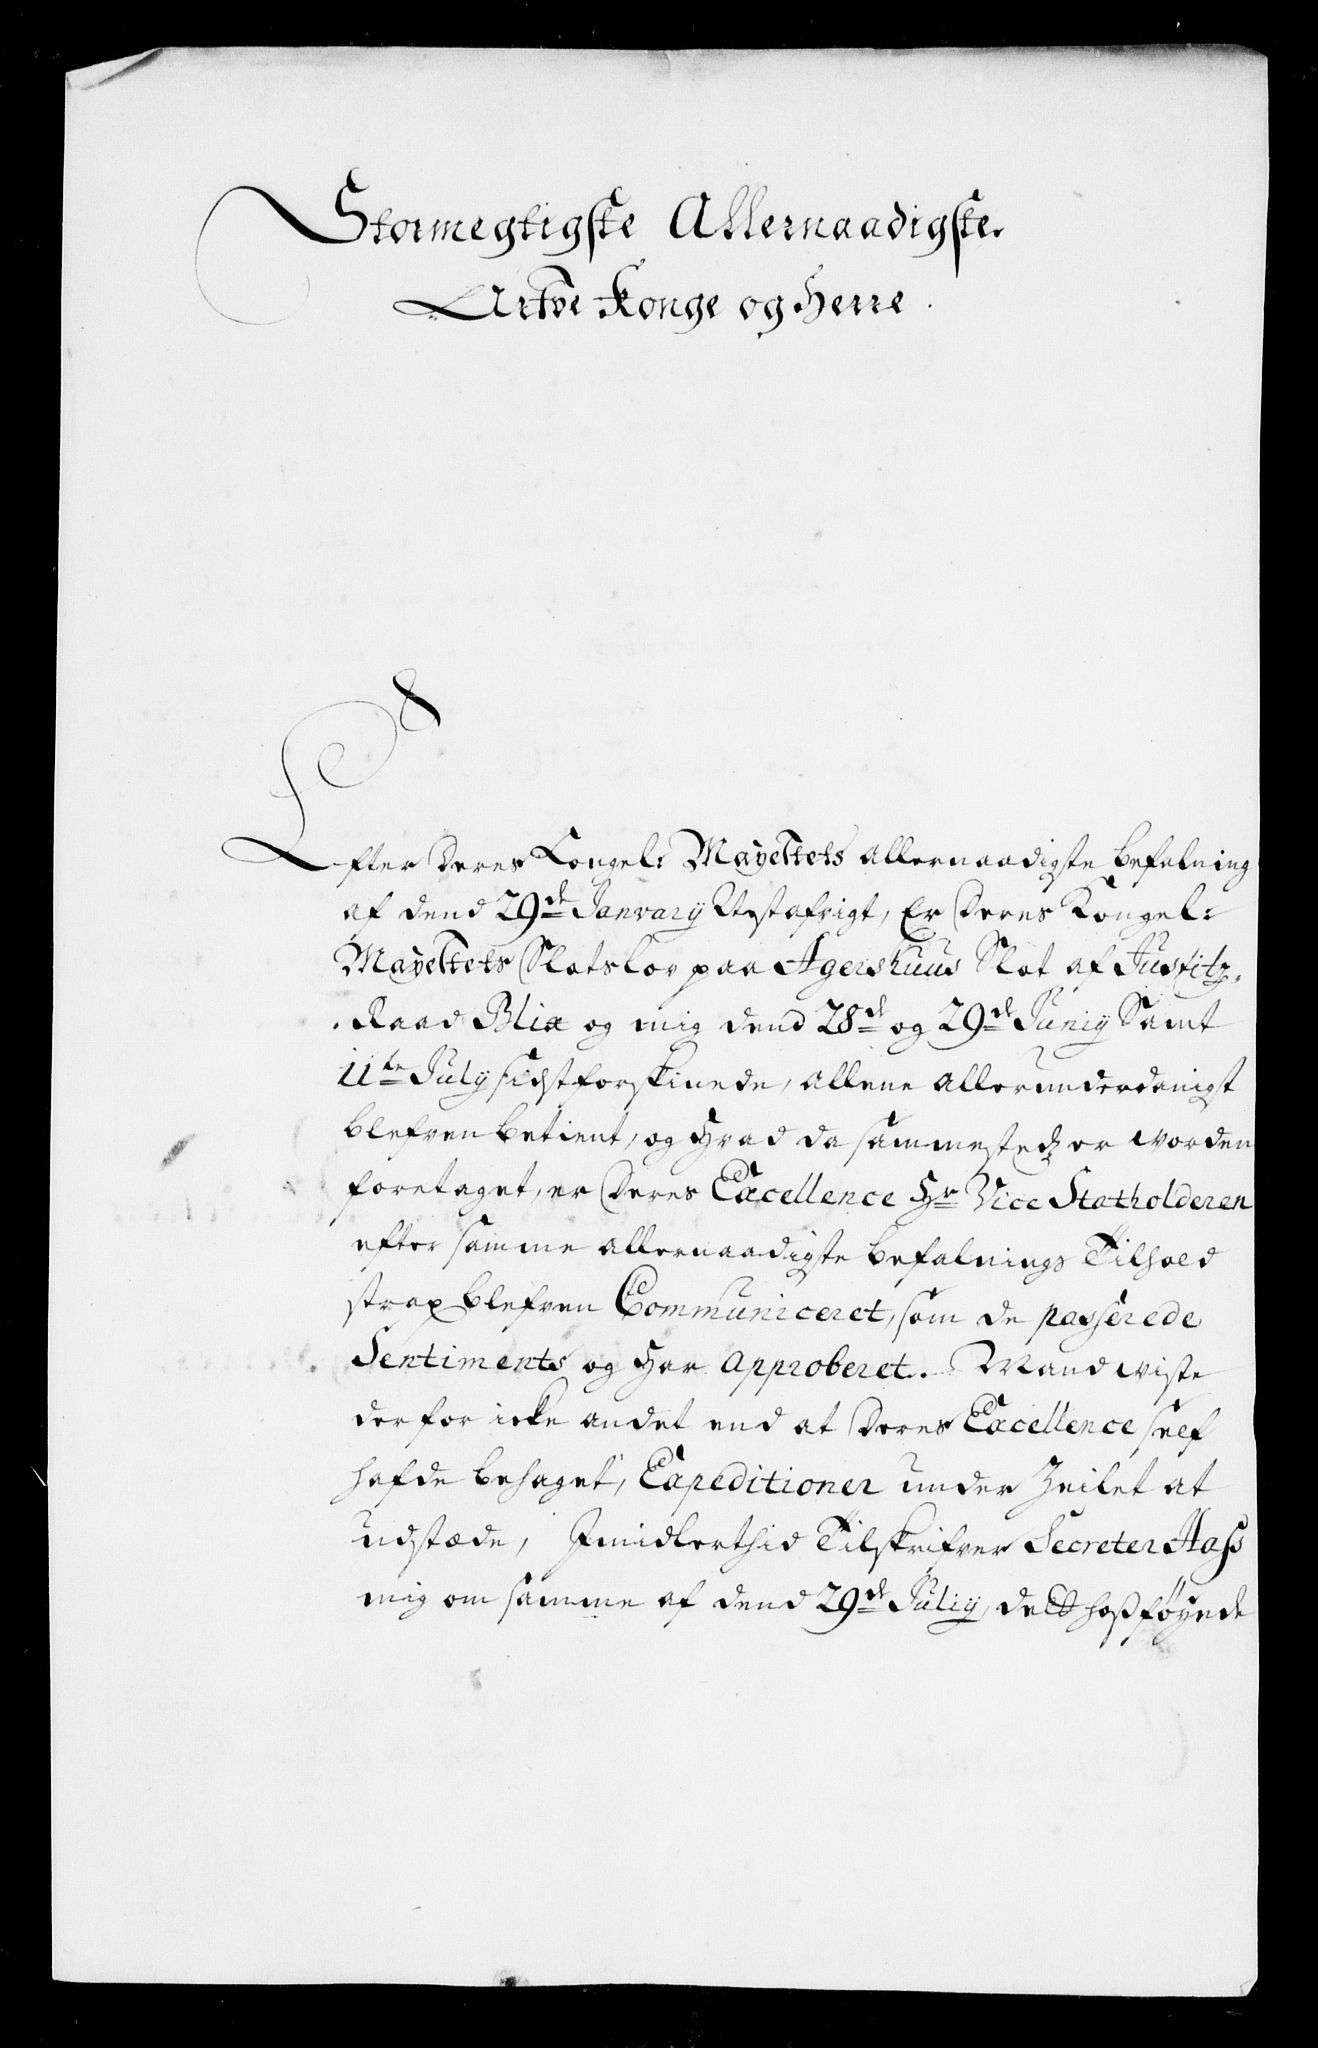 Stormegtigste Allernaadigste
Arfve Konge og Herre.
Efter Deres Kongel: Mayettets allernaadigste befalning
af dend 29de January Nestafvigt, Er Deres Kongel:
Mayettets Slotslov paa Agershuus Slot af Justitz-
Raad Blix og mig dend 28de og 29de Junij Samt
11te July sidstforskinede, allene allerunderdanigst
blefven betient, og Hvad da sammestedz er worden
foretaget, er Deres Excellence Hr Vice Statholderen
efter samme allernaadigste befalnings Tilhold
strax blefven Communiceret, som de passerede
Sentiments og Har Approberet. Mand wiste
derfor icke andet end at Deres Excellence self
hafde behaget, Expeditioner under Zeilet at
udstæde, Imidlerthid Tilskrifver Secreter Hass
mig om samme af dend 29de Julij, dett hosføyede